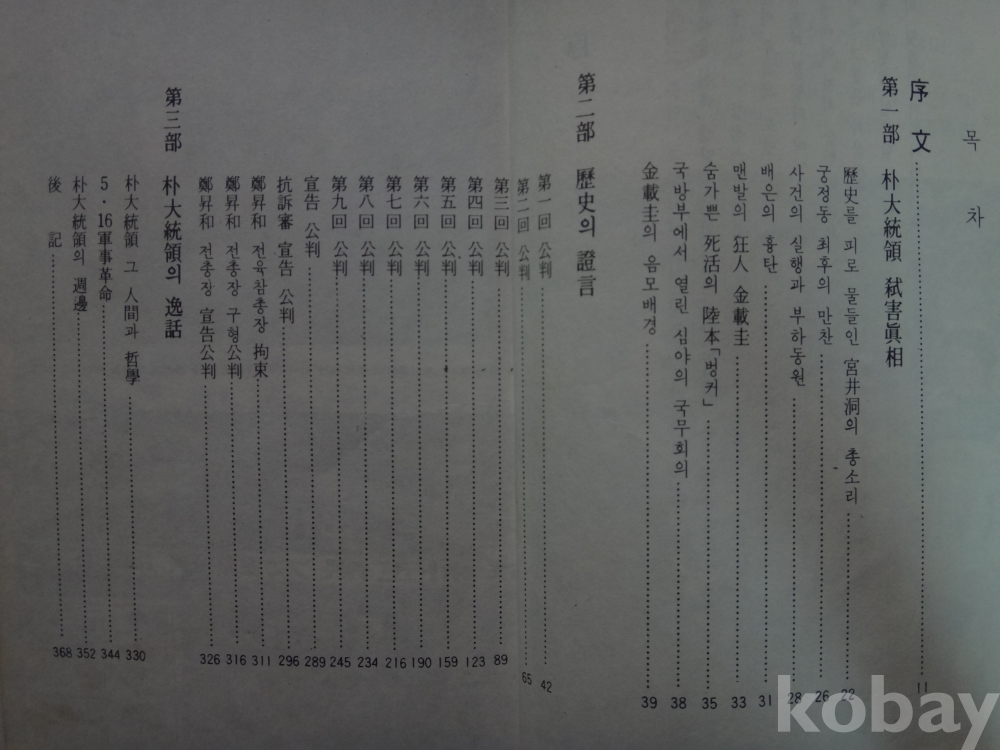 목 차
序 文 11
第一部 朴大統領 弑害眞相
歷史를 피로 물들인 宮井洞의 총소리 22
궁정동 최후의 만찬 26
사건의 실행과 부하동원 28
배은의 흉탄 31
맨발의 狂人 金載圭 33
숨가쁜 死活의 陸本「벙커」 35
국방부에서 열린 심야의 국무회의 38
金載圭의 음모배경 39
第二部 歷史의 證言
第一回 公判 42
第二回 公判 65
第三回 公判 89
第四回 公判 123
第五回 公判 159
第六回 公判 190
第七回 公判 216
第八回 公判 234
第九回 公判 245
宣告 公判 289
抗訴審 宣告 公判 296
鄭昇和 전육참총장 拘束 311
鄭昇和 전총장 구형公判 316
鄭昇和 전총장 宣告公判 326
第三部 朴大統領의 逸話
朴大統領 그 人間과 哲學 330
5·16軍事革命 344
朴大統領의 週邊 352
後 記 368
kobay